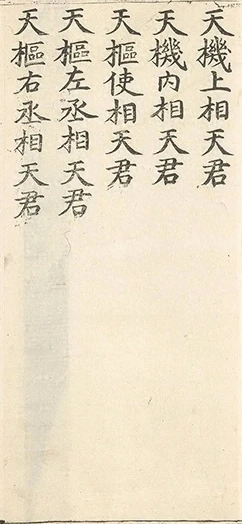 天機上相天君
天機內相天君
天樞使相天君
天樞左丞相天君
天樞右丞相天君